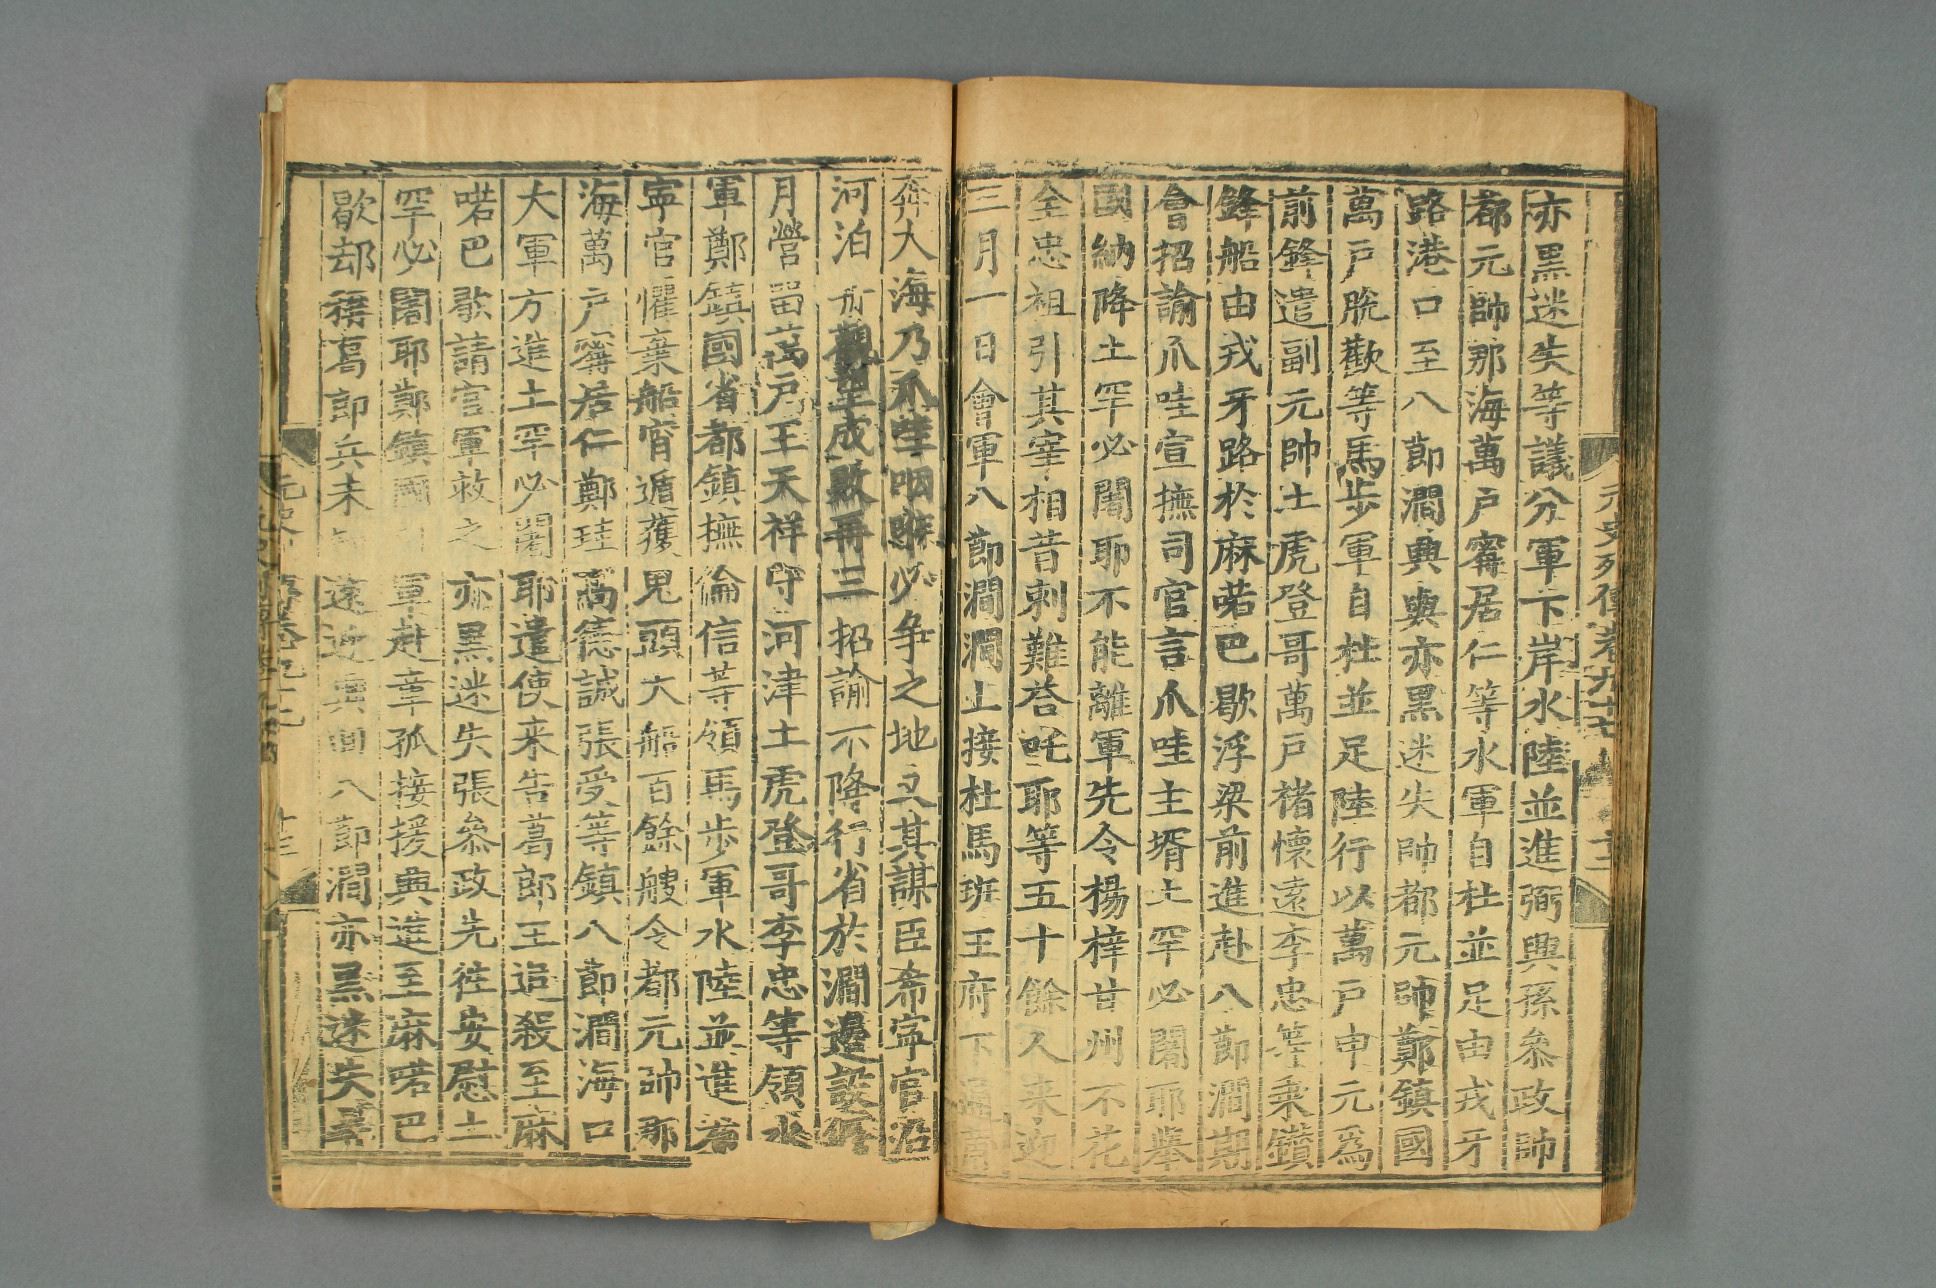 元史列傳卷九十七 十二
亦黑迷失等議分軍下岸水陸並進弼與孫叅政帥
都元帥那海萬戶甯居仁等水軍自杜並足由戎牙
路港口至八節澗興與亦黑迷失帥都元帥鄭鎮國
萬戶脫歡等馬步軍自杜並足陸行以萬戶申元爲
前鋒遣副元帥土虎登哥萬戶褚懷遠李忠等乘鑽
鋒船由戎牙路於麻喏巴歇浮梁前進赴八節澗期
會招諭爪哇宣撫司官言爪哇主壻土罕必闍耶舉
國納降土罕必闍耶不能離軍先令楊梓甘州不花
全忠祖引其宰相昔剌難荅吒耶等五十餘人来迎
三月一日會軍八節澗澗上接杜馬班王府下通莆
奔大海乃爪哇咽喉必争之地又其謀臣希寧官沿
河泊 觀望成敗再三招諭不降行省於澗邊設偃
月營留萬戶王天祥守河津土虎登哥李忠等領水
軍鄭鎮國省都鎮撫倫信等領馬步軍水陸並進希
寧官懼棄船宵遁獲鬼頭大船百餘艘令都元帥那
海萬戶甯居仁鄭珪高德誠張受等鎮八節澗海口
大軍方進土罕必闍耶遣使来告葛郎王追殺至麻
喏巴歇請官軍救之 亦黑迷失張叅政先徃安慰土
罕必闍耶鄭鎮國 軍赴章孤接援興進至麻喏巴
歇却稱葛郎兵未 遠近興回八節澗亦黑迷失尋